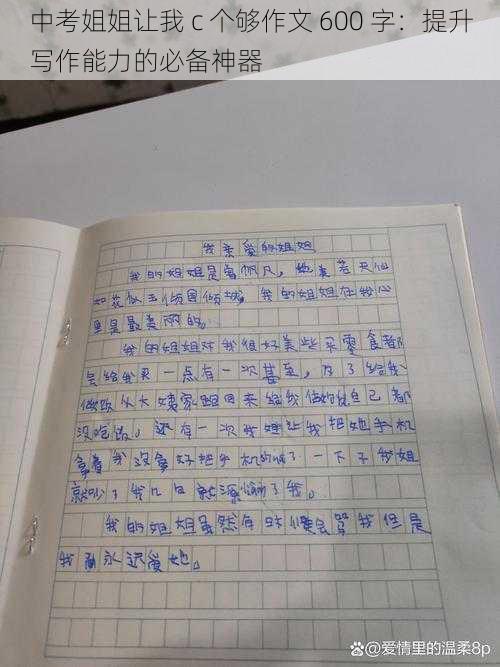 中考姐姐让我 c 个够作文 600 字：提升
写作能力的必备神器
我亲爱的姐姐
我的姐姐是个佩凡，她美若天仙
如花似玉倾国倾城，我的姐姐在我心
里是最美丽的。
我的姐姐对我很好美些买零食都
会给我买一点有一次甚至，为了给我
做饭从大姨家跑回来给我做的说自己都
没吃饭。还有一次我姐让我把她手机
拿着我没拿好把手机的啪了一下子我姐
就吵了我几句就原谅了我。
我的姐姐虽然有时候会骂我但是
我永远爱她。
@爱情里的温柔8p